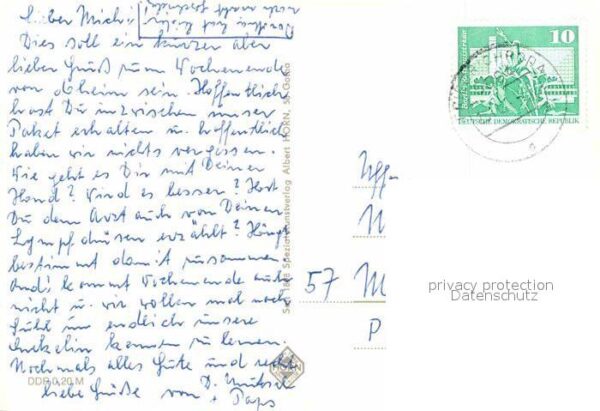 Lieber Mich
Dies soll ein kurzer aber
lieber Gruß zum Wochenende
von daheim sein. Hoffentlich
hast Du inzwischen unser
Paket erhalten u. hoffentlich
haben wir nichts vergessen.
Wie geht es Dir mit Deiner
Hand? Wird es besser? Hast
Du dem Arzt auch von Deinen
Lymphdrüsen erzählt? Hängt
bestimmt damit zusammen.
Andi kommt Wochenende auch
nicht u. wir wollen mal nach
um endlich unsere
Enkelin kennen zu lernen.
Nochmals alles Gute und recht
liebe Grüße von D.
+ Paps
DDR 0,20 M
Spezialkunstverlag Albert HORN, 58 Gotha
HORN
10
DEUTSCHE DEMOKRATISCHE REPUBLIK
Uffz
57 M
P
privacy protection
Datenschutz